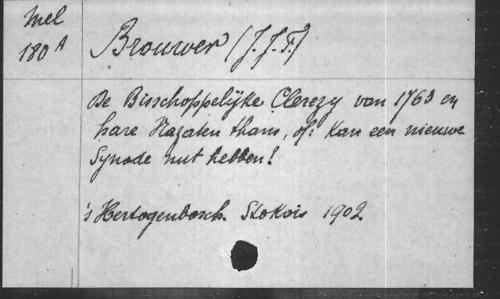 Mel
180 A
Brouwer (J.J.F.)
De Bisschoppelijke Clerezy van 1763 en
hare Nazaten thans, of: Kan een nieuwe
Synode nut hebben!
's Hertogenbosch. Stokvis 1902